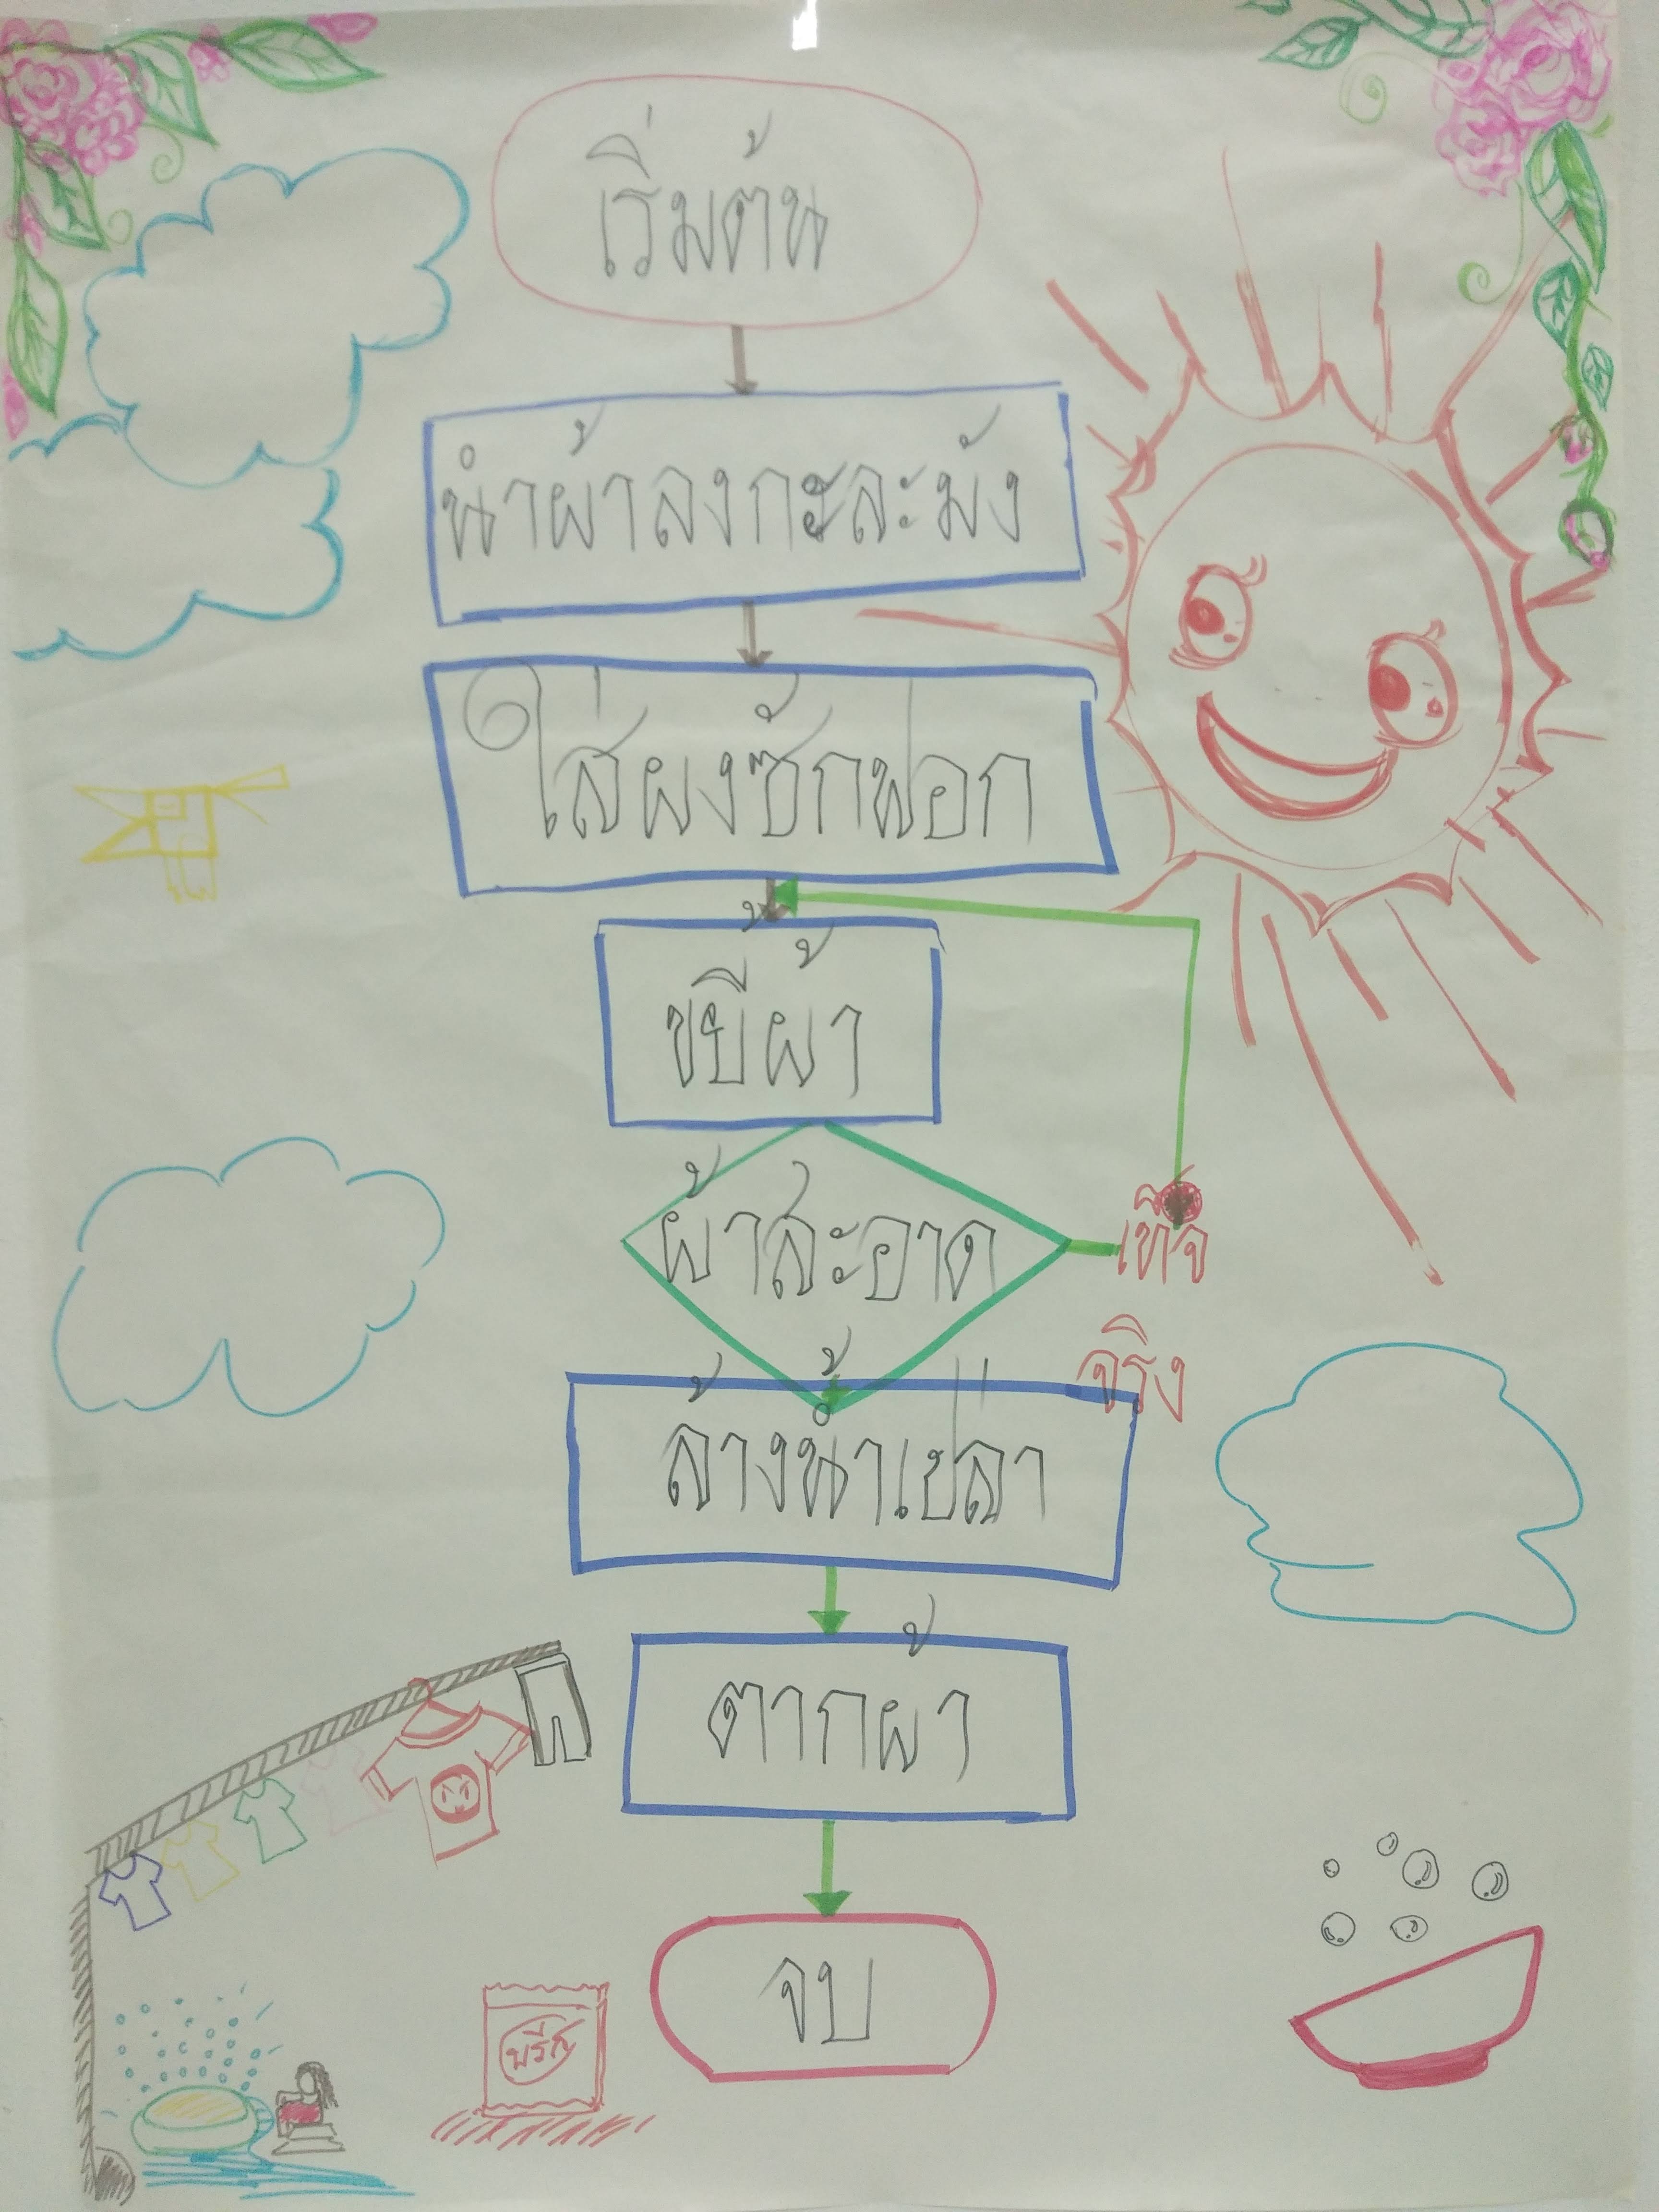 เริ่มต้น
นำผ้าลงกะละมัง
ใส่ผงซักฟอก
ขยี้ผ้า
ผ้าสะอาด
เท็จ
จริง
ล้างน้ำเปล่า
ตากผ้า
จบ